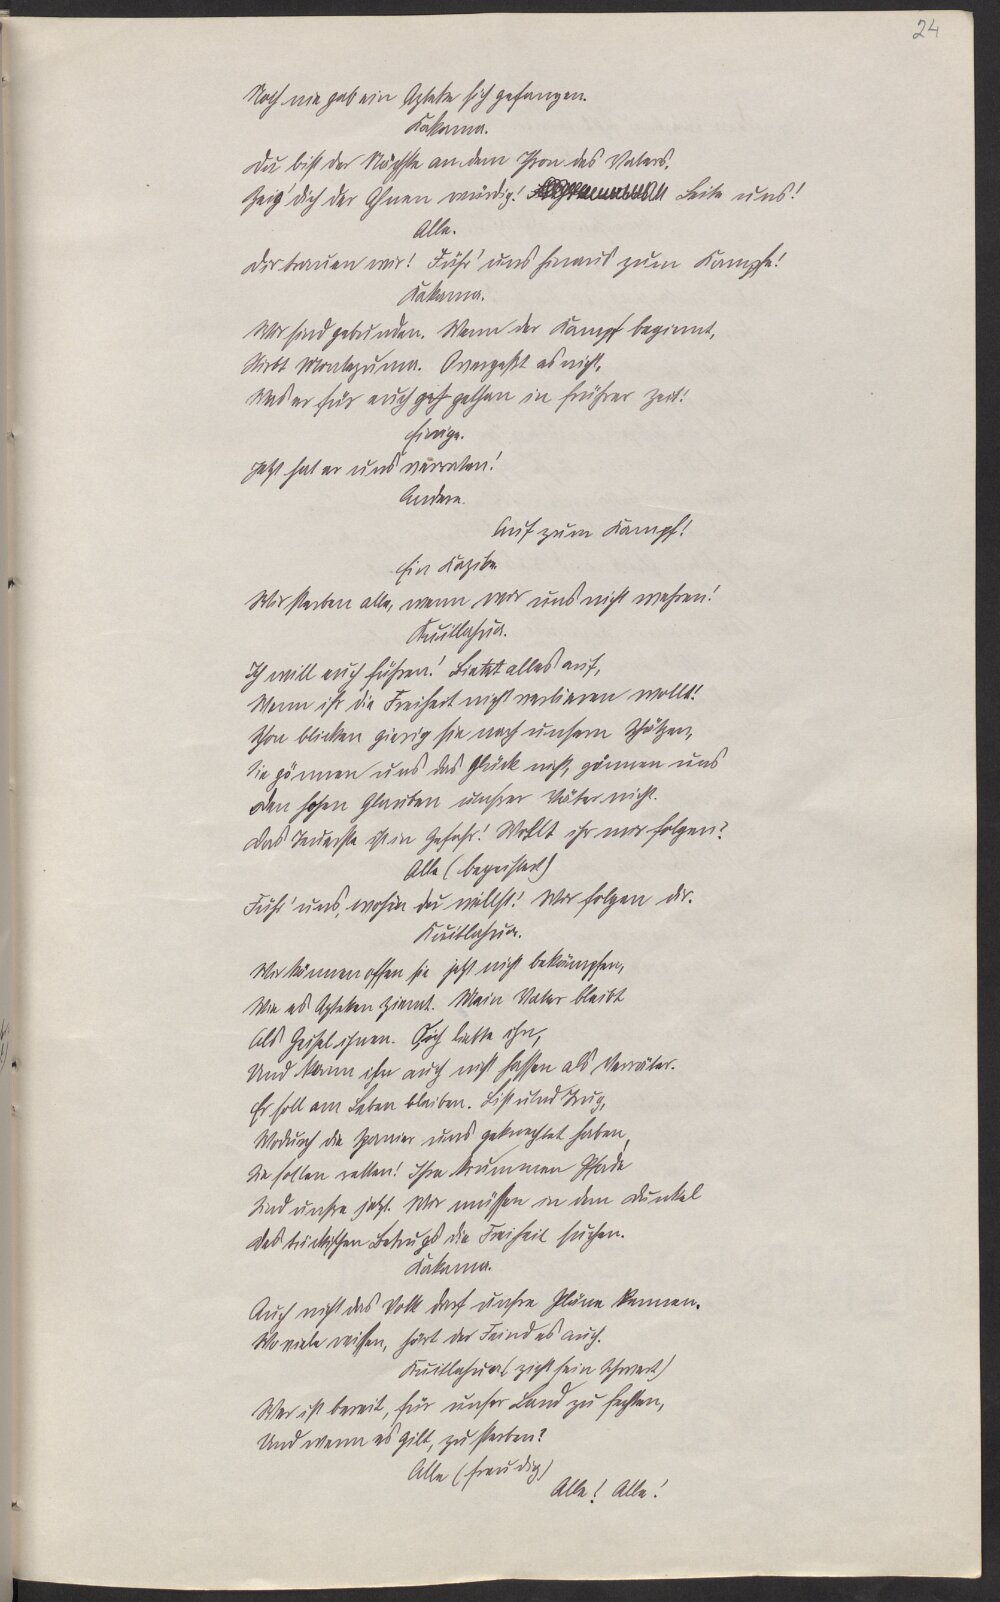 24
Noch nie gab ein Azteke sich gefangen.
Kakama.
Du bist der Nächste an dem Thron des Vaters.
Zeig' dich der Ahnen würdig! Leite uns!
Alle.
Dir trauen wir! Führ' uns hinaus zum Kampfe!
Kakama.
Wir sind gebunden. Wenn der Kampf beginnt,
Stirbt Montezuma. O vergeßt es nicht,
Was er für euch gethan in früh'rer Zeit!
Einige.
Jetzt hat er uns verraten!
Andere.
Auf zum Kampf!
Ein Kazike.
Wir sterben alle, wenn wir uns nicht wehren!
Kuitlahua.
Ich will euch führen! Bietet alles auf,
Wenn ihr die Freiheit nicht verlieren wollt!
Schon blicken gierig sie nach unsern Schätzen,
Sie gönnen uns das Glück nicht, gönnen uns
Den hohen Glauben unsrer Väter nicht.
Das Teuerste ist in Gefahr! Wollt ihr mir folgen?
Alle (begeistert)
Führ' uns, wohin du willst! Wir folgen dir.
Kuitlahua.
Wir können offen sie jetzt nicht bekämpfen,
Wie es Azteken ziemt. Mein Vater bleibt
Als Geisel ihnen. Ich liebte ihn,
Und kann ihn auch nicht hassen als Verräter.
Er soll am Leben bleiben. List und Trug,
Wodurch die Spanier uns geknechtet haben,
Sie sollen retten! Ihre krummen Pfade
Sind unsre jetzt. Wir müssen in dem Dunkel
Des tückischen Betrugs die Freiheit suchen.
Kakama.
Auch nicht das Volk darf unsre Pläne kennen.
Wo viele wissen, hört der Feind es auch.
Kuitlahua (zieht sein Schwert)
Wer ist bereit, für unser Land zu fechten,
Und wenn es gilt, zu sterben?
Alle (freudig)
Alle! Alle!